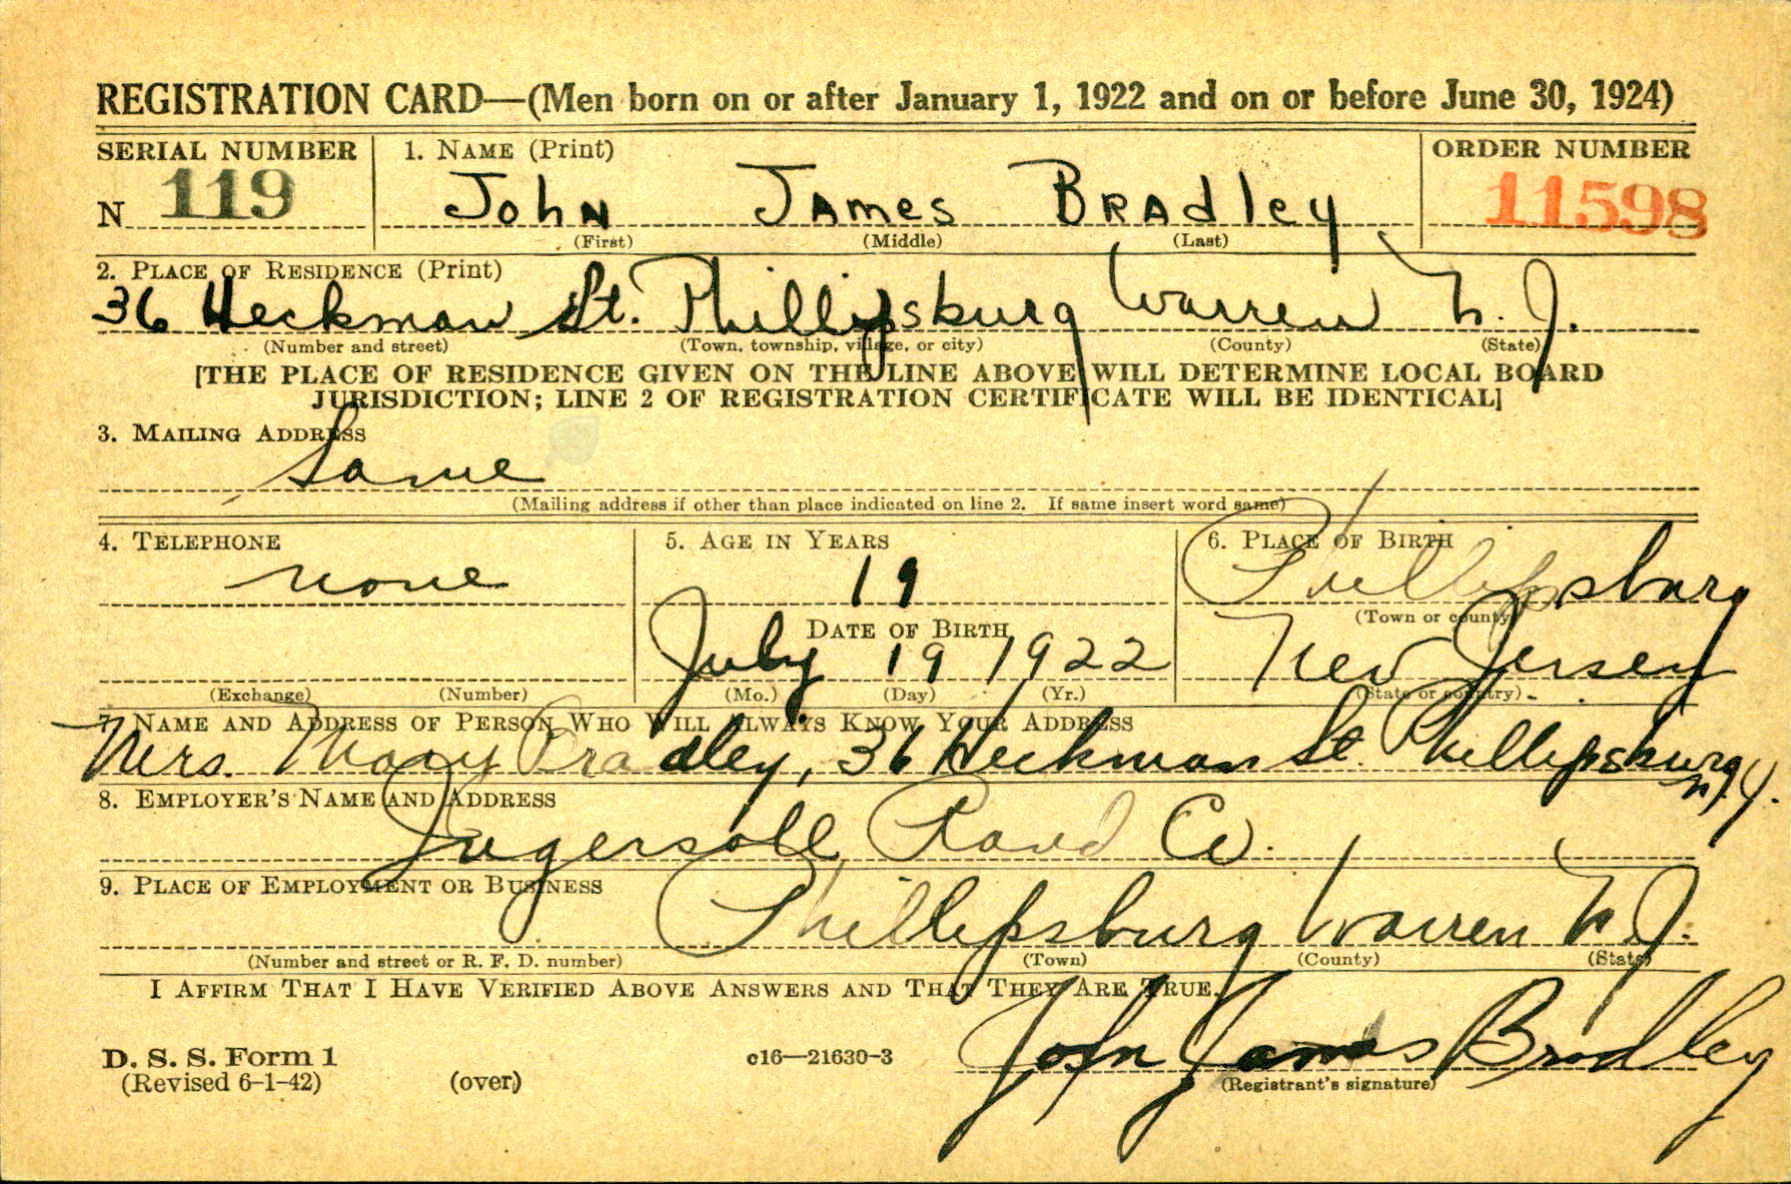 REGISTRATION CARD—(Men born on or after January 1, 1922 and on or before June 30, 1924)
SERIAL NUMBER 1. NAME (Print) ORDER NUMBER
N 119 John James Bradley 11598
(First) (Middle) (Last)
2. PLACE OF RESIDENCE (Print)
36 Heckman St. Phillipsburg Warren N. J.
(Number and street) (Town, township, village, or city) (County) (State)
[THE PLACE OF RESIDENCE GIVEN ON THE LINE ABOVE WILL DETERMINE LOCAL BOARD
JURISDICTION; LINE 2 OF REGISTRATION CERTIFICATE WILL BE IDENTICAL]
3. MAILING ADDRESS
Same
(Mailing address if other than place indicated on line 2. If same insert word same)
4. TELEPHONE 5. AGE IN YEARS 6. PLACE OF BIRTH
none 19 Phillipsburg
(Town or county)
DATE OF BIRTH
July 19 1922 New Jersey
(Exchange) (Number) (Mo.) (Day) (Yr.) (State or country)
7. NAME AND ADDRESS OF PERSON WHO WILL ALWAYS KNOW YOUR ADDRESS
Mrs. Mary Bradley, 36 Heckman St. Phillipsburg N.J.
8. EMPLOYER'S NAME AND ADDRESS
Ingersoll Rand Co.
9. PLACE OF EMPLOYMENT OR BUSINESS
Phillipsburg Warren N.J.
(Number and street or R. F. D. number) (Town) (County) (State)
I AFFIRM THAT I HAVE VERIFIED ABOVE ANSWERS AND THAT THEY ARE TRUE.
John James Bradley
D. S. S. Form 1 c16—21630-3
(Revised 6-1-42) (over) (Registrant's signature)